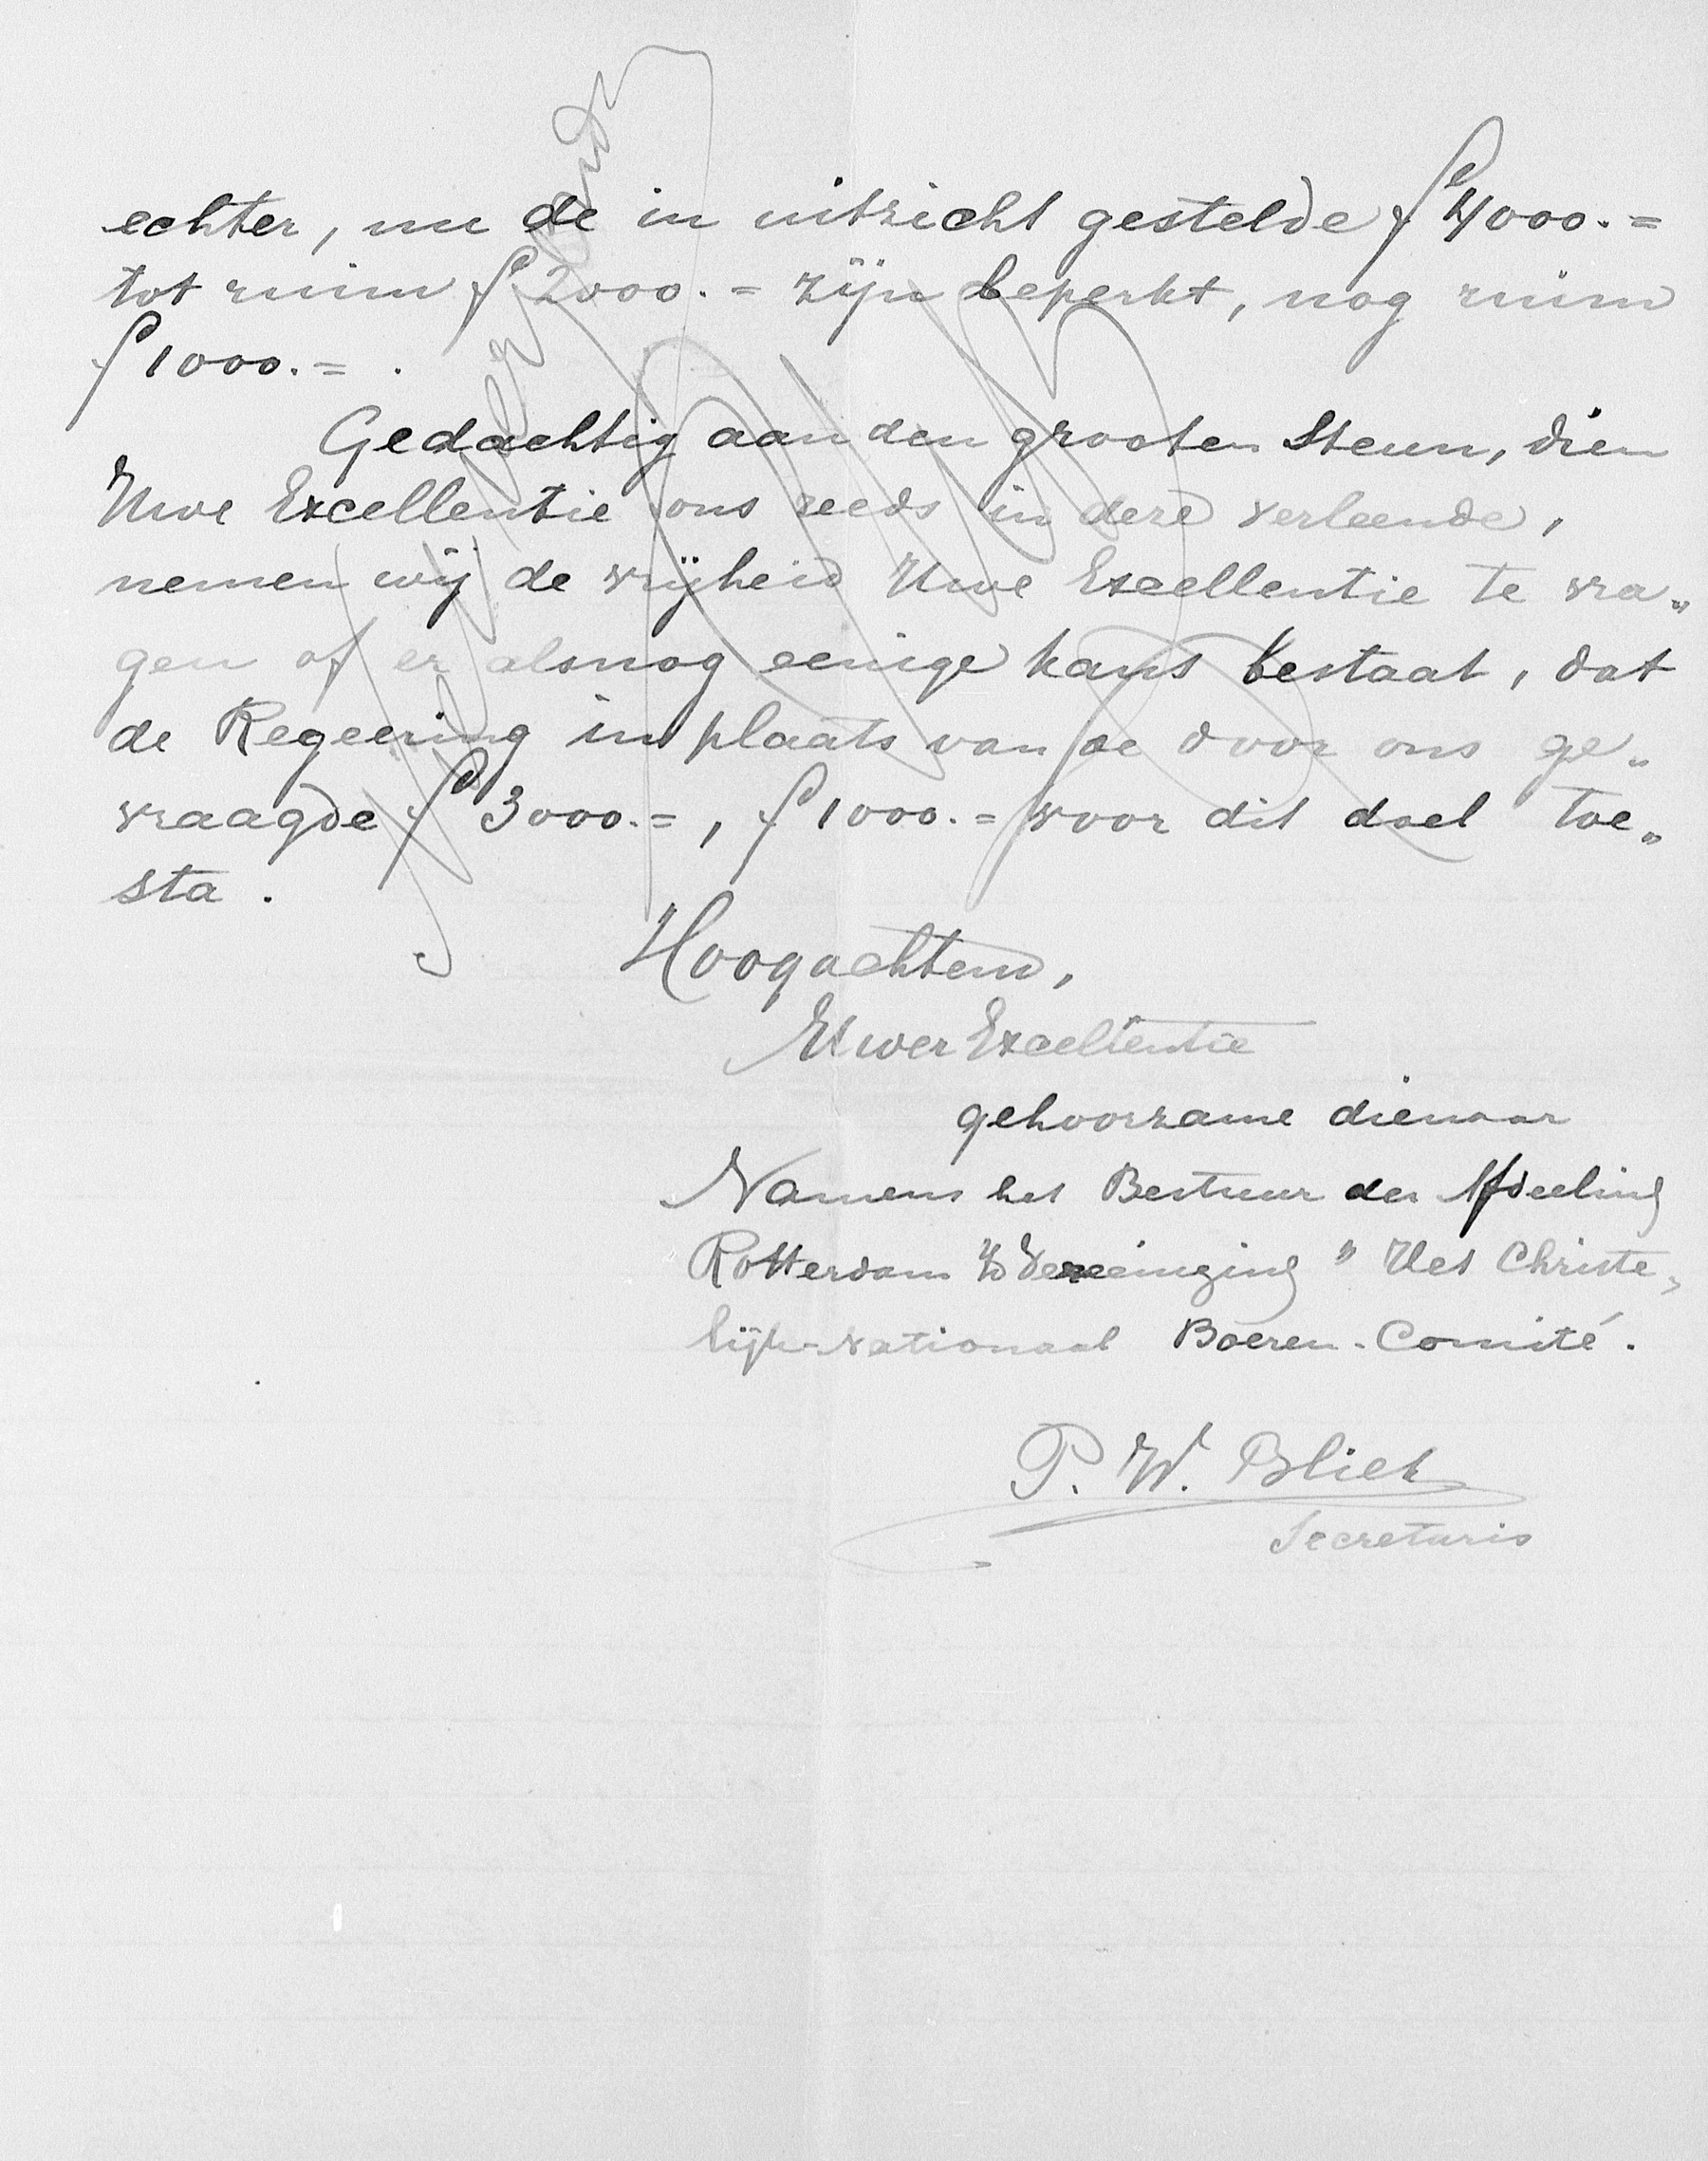 echter, nu de in uitzicht gestelde f 4000.=
tot ruim f 2000.= zijn beperkt, nog ruim
f 1000.= .
Gedachtig aan den grooten steun, dien
Uwe Excellentie ons reeds in deze verleende,
nemen wij de vrijheid Uwe Excellentie te vra„
gen of er alsnog eenige kans bestaat, dat
de Regeering in plaats van de door ons ge„
vraagde f 3000.=, f 1000.= voor dit doel toe„
sta.
Hoogachtend,
Uwer Excellentie
gehoorzame dienaar
Namens het Bestuur der Afdeeling
Rotterdam Vereeniging " Het Christe„
lijk-Nationaal Boeren-Comité.
P. W. Bliek
Secretaris